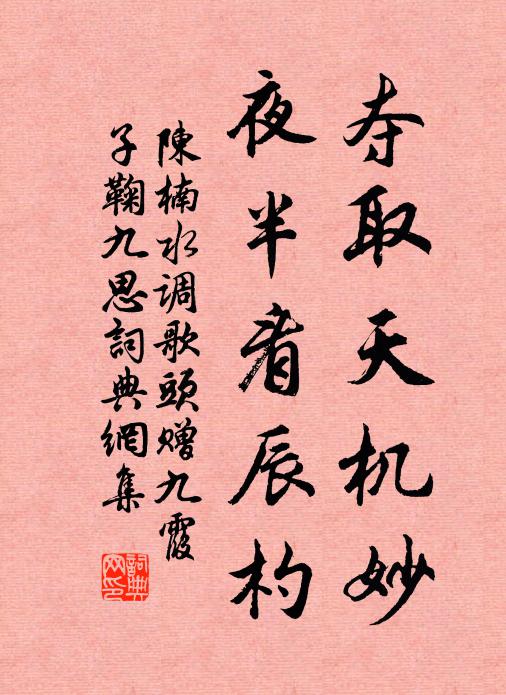 夺取天机妙
夜半看辰杓
陳楠水调歌頭赠九霞
子鞠九思詞典網集
詞典网印